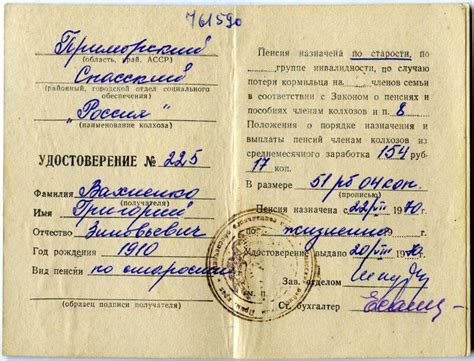 761590
Приморский
(область, край, АССР)
Спасский
(районный, городской отдел социального обеспечения)
"Россия"
(наименование колхоза)
УДОСТОВЕРЕНИЕ № 225
Фамилия Вахненко
(получателя)
Имя Григорий
Отчество Зиновьевич
Год рождения 1910
Вид пенсии по старости
(образец подписи получателя)
Пенсия назначена по старости, по
группе инвалидности, по случаю
потери кормильца на членов семьи
в соответствии с Законом о пенсиях и
пособиях членам колхозов и п. 8
Положения о порядке назначения и
выплаты пенсий членам колхозов из
среднемесячного заработка 154 руб.
17 коп.
В размере 51 рб 04 коп.
(прописью)
Пенсия назначена с 22/VII 1970г.
по жизненно
Удостоверение выдано 20/VIII 1970г.
Зав. отделом
Ст. бухгалтер